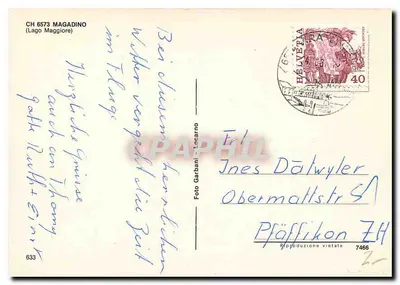 CH 6573 MAGADINO
(Lago Maggiore)
HELVETIA
40
Bei diesem herrlichen
Wetter vergeht die Zeit
im Fluge
Herzliche Grüsse
auch an Thomy
Ruth +
Foto Garbani Locarno
Frl
Ines Dätwyler
Obermattstr
Pfäffikon ZH
Riproduzione vietata
7466
633
2.-